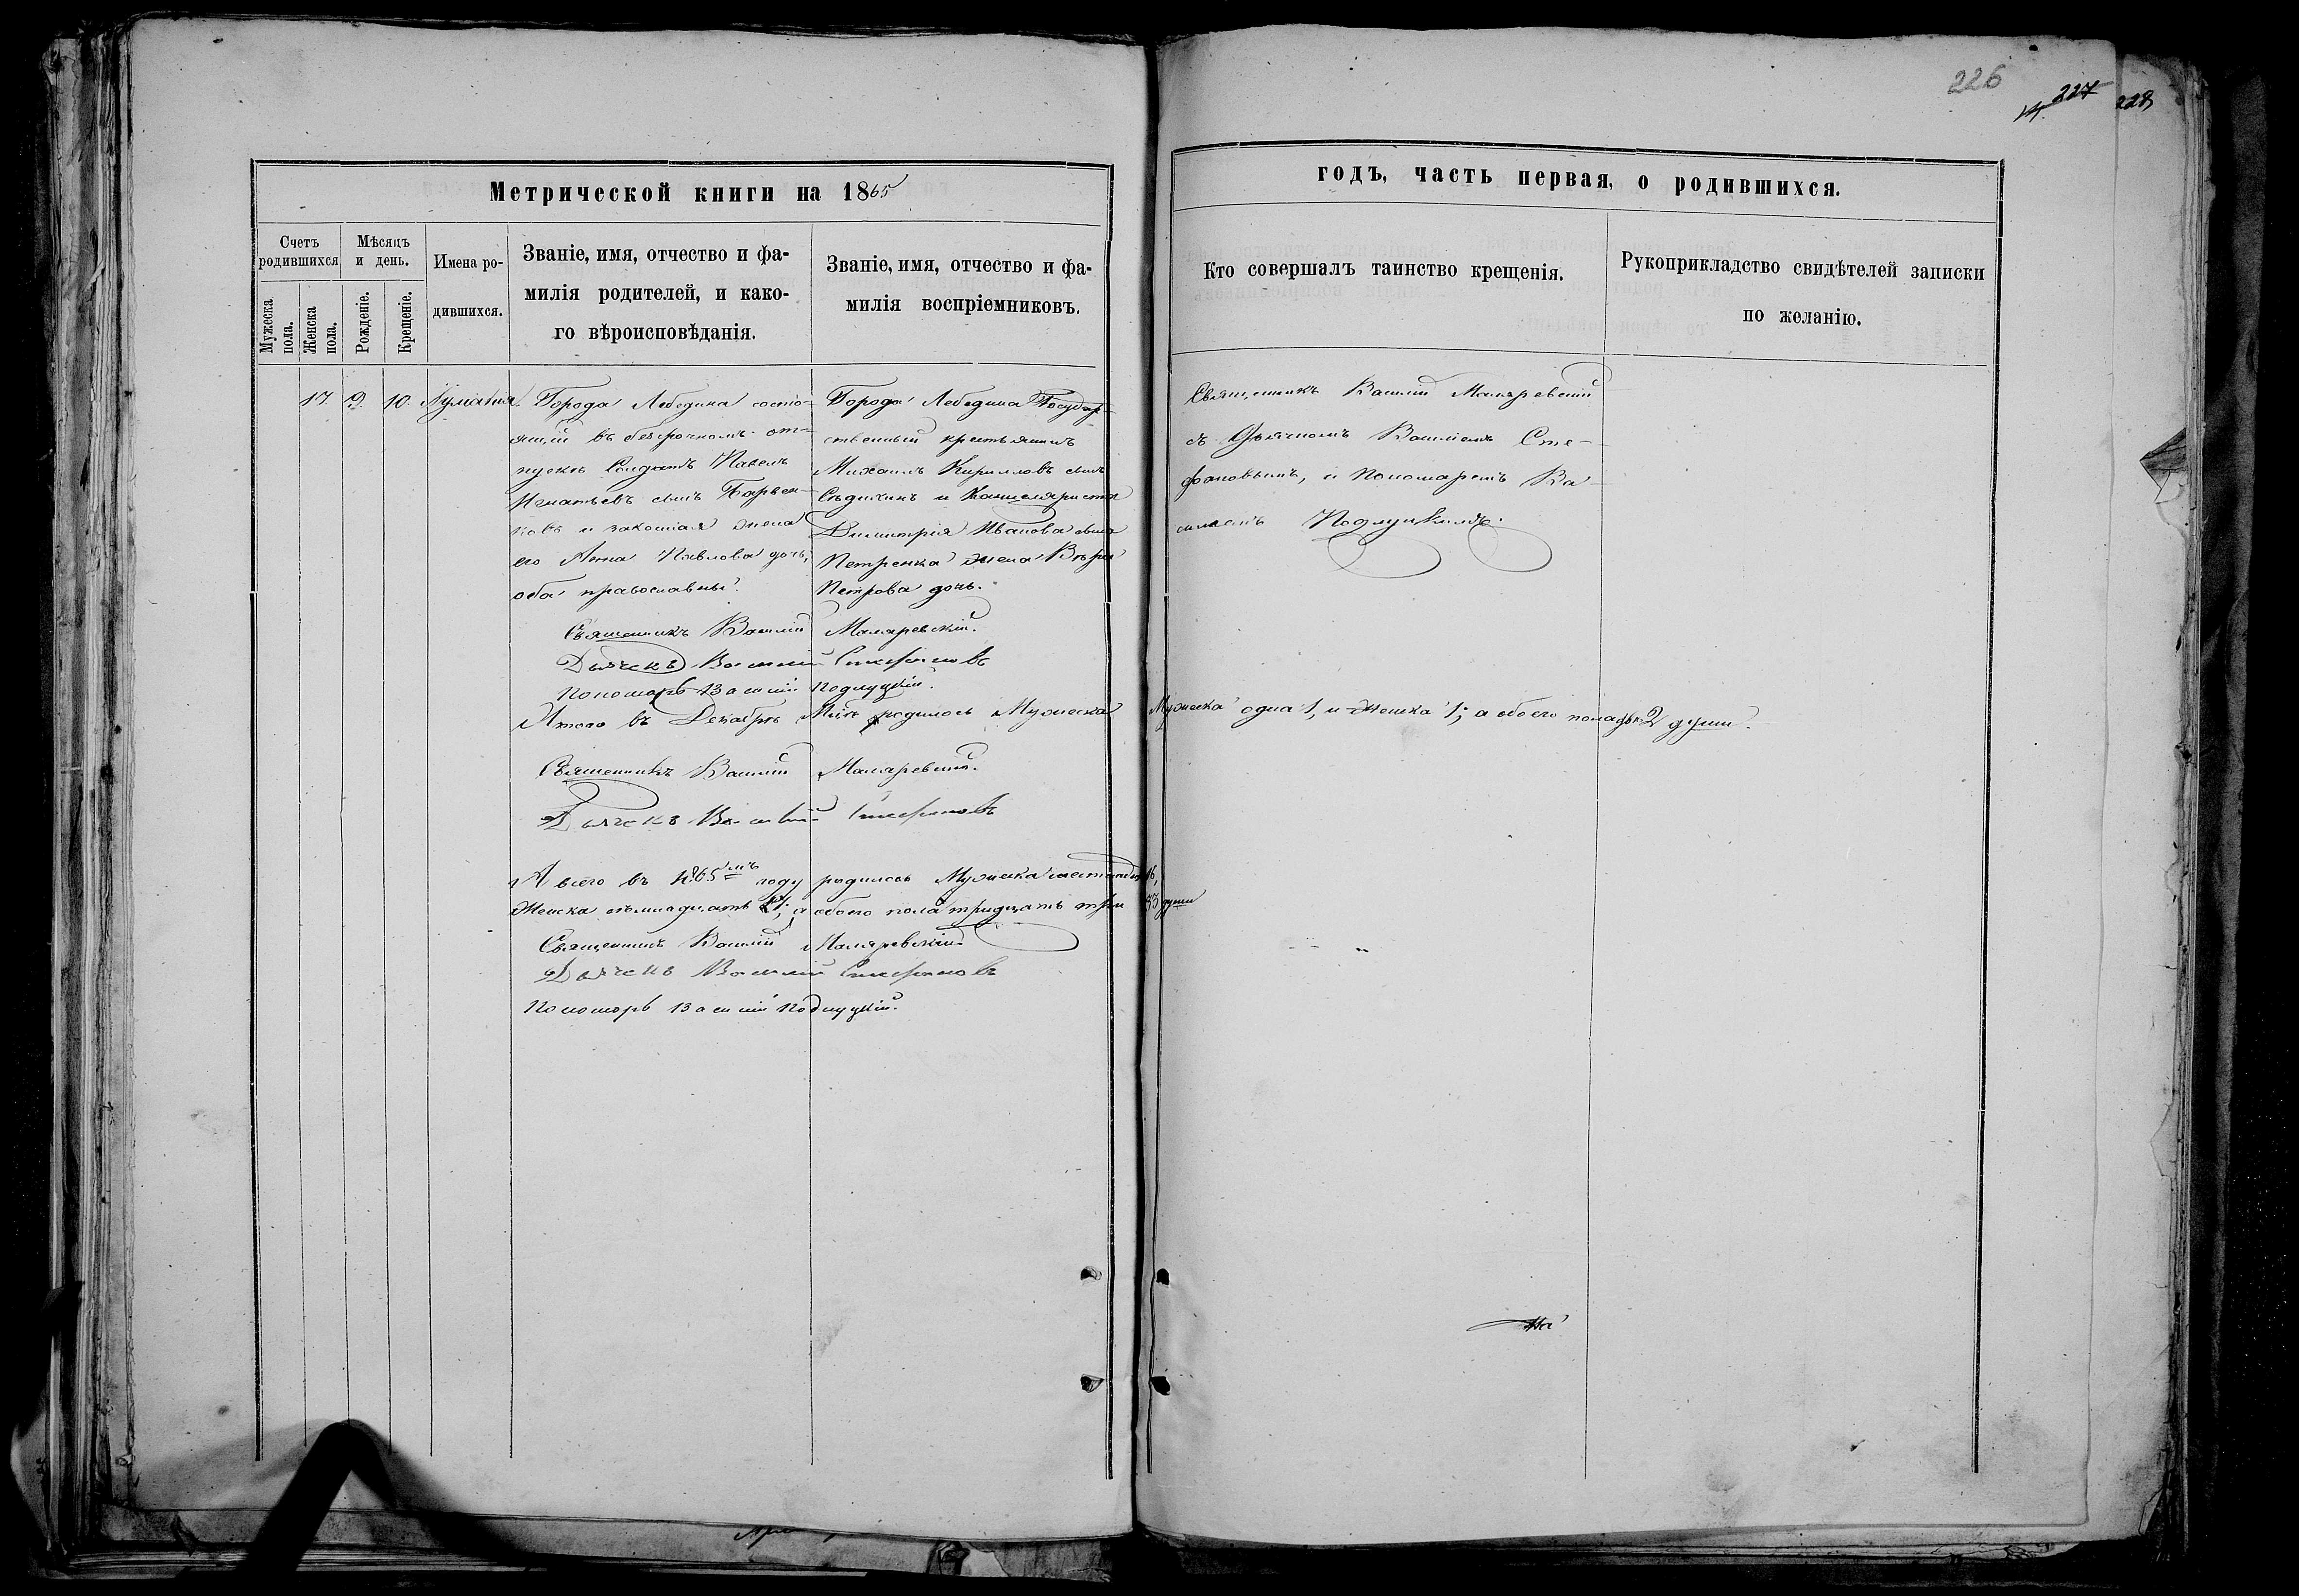 226
227
228
Метрической книги на 1865
годъ, часть первая, о родившихся.
Счетъ родившихся
Мѣсяцъ и день.
Имена родившихся.
Званіе, имя, отчество и фамилія родителей, и какого вѣроисповѣданія.
Званіе, имя, отчество и фамилія воспріемниковъ.
Кто совершалъ таинство крещенія.
Рукоприкладство свидѣтелей записки по желанію.
Мужеска пола.
Женска пола.
Рожденіе.
Крещеніе.
17. 9. 10.
Города Лебедина состо-
ящій въ безсрочномъ от-
пускѣ Солдатъ Павелъ
Игнатьевъ сынъ Пархен-
ковъ и законная жена
его Анна Павлова дочь,
оба православны.
Города Лебедина Государ-
ственный крестьянинъ
Михаилъ Кирилловъ сынъ
и Канцеляриста
Димитрія Иванова сына
Петренка жена Вѣра
Петрова дочь.
Священникъ Василій Маляревскій
съ Дьячкомъ Василіемъ Сте-
фановымъ, и Пономаремъ Ва-
силіемъ Подлуцкимъ.
Священникъ Василій Маляревскій.
Дьячекъ Василій Стефановъ
Пономарь Василій Подлуцкій.
Итого въ Декабрѣ М-цѣ родилось Мужеска
Мужеска одна 1, и Женска 1; а обоего пола двѣ 2 души.
Священникъ Василій Маляревскій.
Дьячекъ Василій Стефановъ
А всего въ 1865мъ году родилось Мужеска шестнадцать 16,
Женска семнадцать 17; а обоего пола тридцать три 33 души
Священникъ Василій Маляревскій
Дьячекъ Василій Стефановъ
Пономарь Василій Подлуцкій.